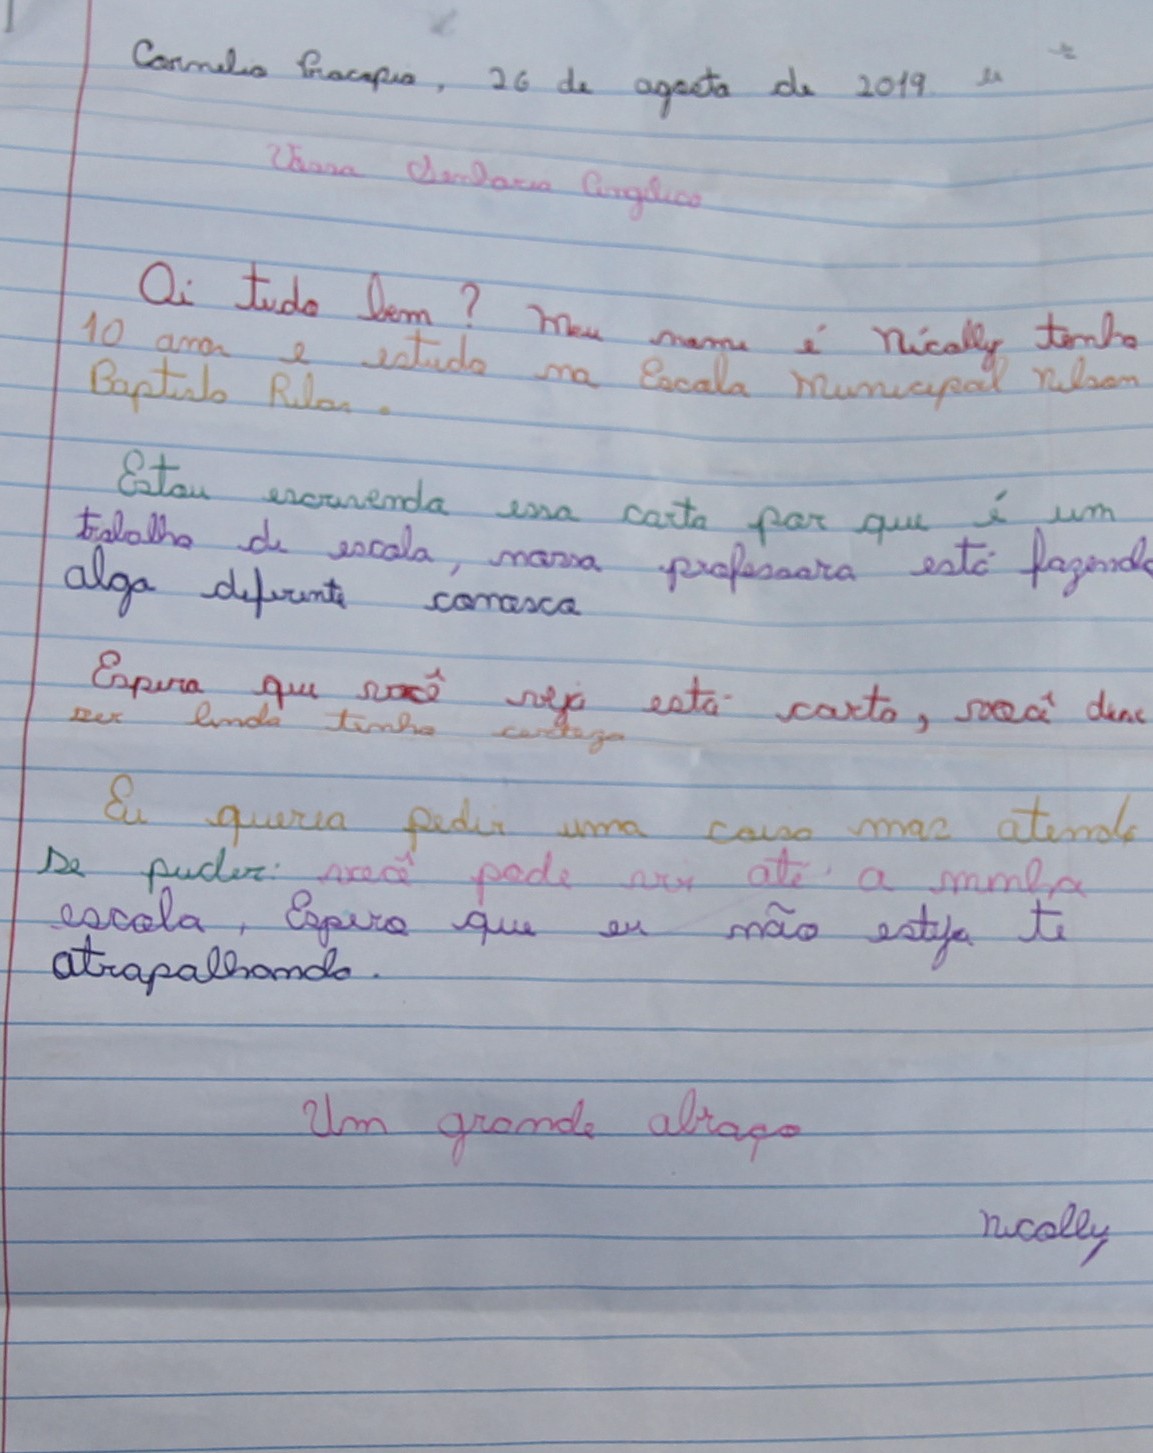 Cornelio Procopio, 26 de agosto de 2019
Angelico
Oi tudo bem? Meu nome é Nicolly tenho
10 anos e estudo na Escola Municipal Nelson
Baptista
Estou escrevendo essa carta por que é um
trabalho de escola, nossa professora está fazendo
algo diferente conosco
Espero que você veja está carta, você deve
ser linda tenho certeza
Eu queria pedir uma coisa mas atenda
se puder: você pode vir até a minha
escola, Espero que eu não esteja te
atrapalhando.
Um grande abraço
Nicolly